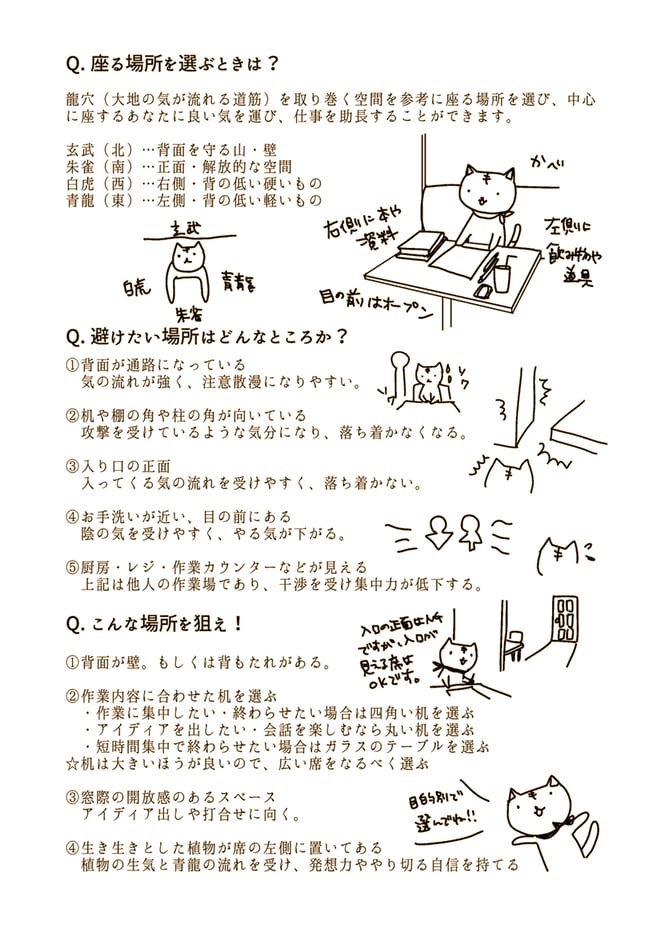 Q. 座る場所を選ぶときは？
龍穴（大地の気が流れる道筋）を取り巻く空間を参考に座る場所を選び、中心
に座するあなたに良い気を運び、仕事を助長することができます。
玄武（北）…背面を守る山・壁
朱雀（南）…正面・解放的な空間
白虎（西）…右側・背の低い硬いもの
青龍（東）…左側・背の低い軽いもの
玄武
白虎
青龍
朱雀
かべ
右側に本や
資料
左側に
飲み物や
道具
目の前はオープン
Q. 避けたい場所はどんなところか？
①背面が通路になっている
気の流れが強く、注意散漫になりやすい。
ソワ
ソワ
②机や棚の角や柱の角が向いている
攻撃を受けているような気分になり、落ち着かなくなる。
③入り口の正面
入ってくる気の流れを受けやすく、落ち着かない。
④お手洗いが近い、目の前にある
陰の気を受けやすく、やる気が下がる。
⑤厨房・レジ・作業カウンターなどが見える
上記は他人の作業場であり、干渉を受け集中力が低下する。
Q. こんな場所を狙え！
入口の正面はNG
ですが、入口が
見える席は
OKです。
①背面が壁。もしくは背もたれがある。
②作業内容に合わせた机を選ぶ
・作業に集中したい・終わらせたい場合は四角い机を選ぶ
・アイディアを出したい・会話を楽しむなら丸い机を選ぶ
・短時間集中で終わらせたい場合はガラスのテーブルを選ぶ
☆机は大きいほうが良いので、広い席をなるべく選ぶ
③窓際の開放感のあるスペース
アイディア出しや打合せに向く。
目的別で
選んでね!!
④生き生きとした植物が席の左側に置いてある
植物の生気と青龍の流れを受け、発想力ややり切る自信を持てる